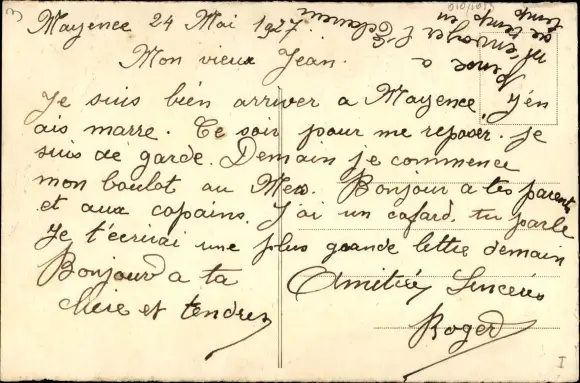 Mayence 24 Mai 1927.
Mon vieux Jean.
Je suis bien arriver a Mayence, J'en
ais marre. Ce soir pour me reposer. je
suis de garde. Demain je commence
mon boulot au Mess. Bonjour a tes parents
et aux copains. J'ai un cafard. tu parle
Je t'écrirai une plus grande lettre demain
Bonjour a ta
chère et tendre
Amitiés Sincères
Roger
pense a
m'envoyer l'
de temps en
temps